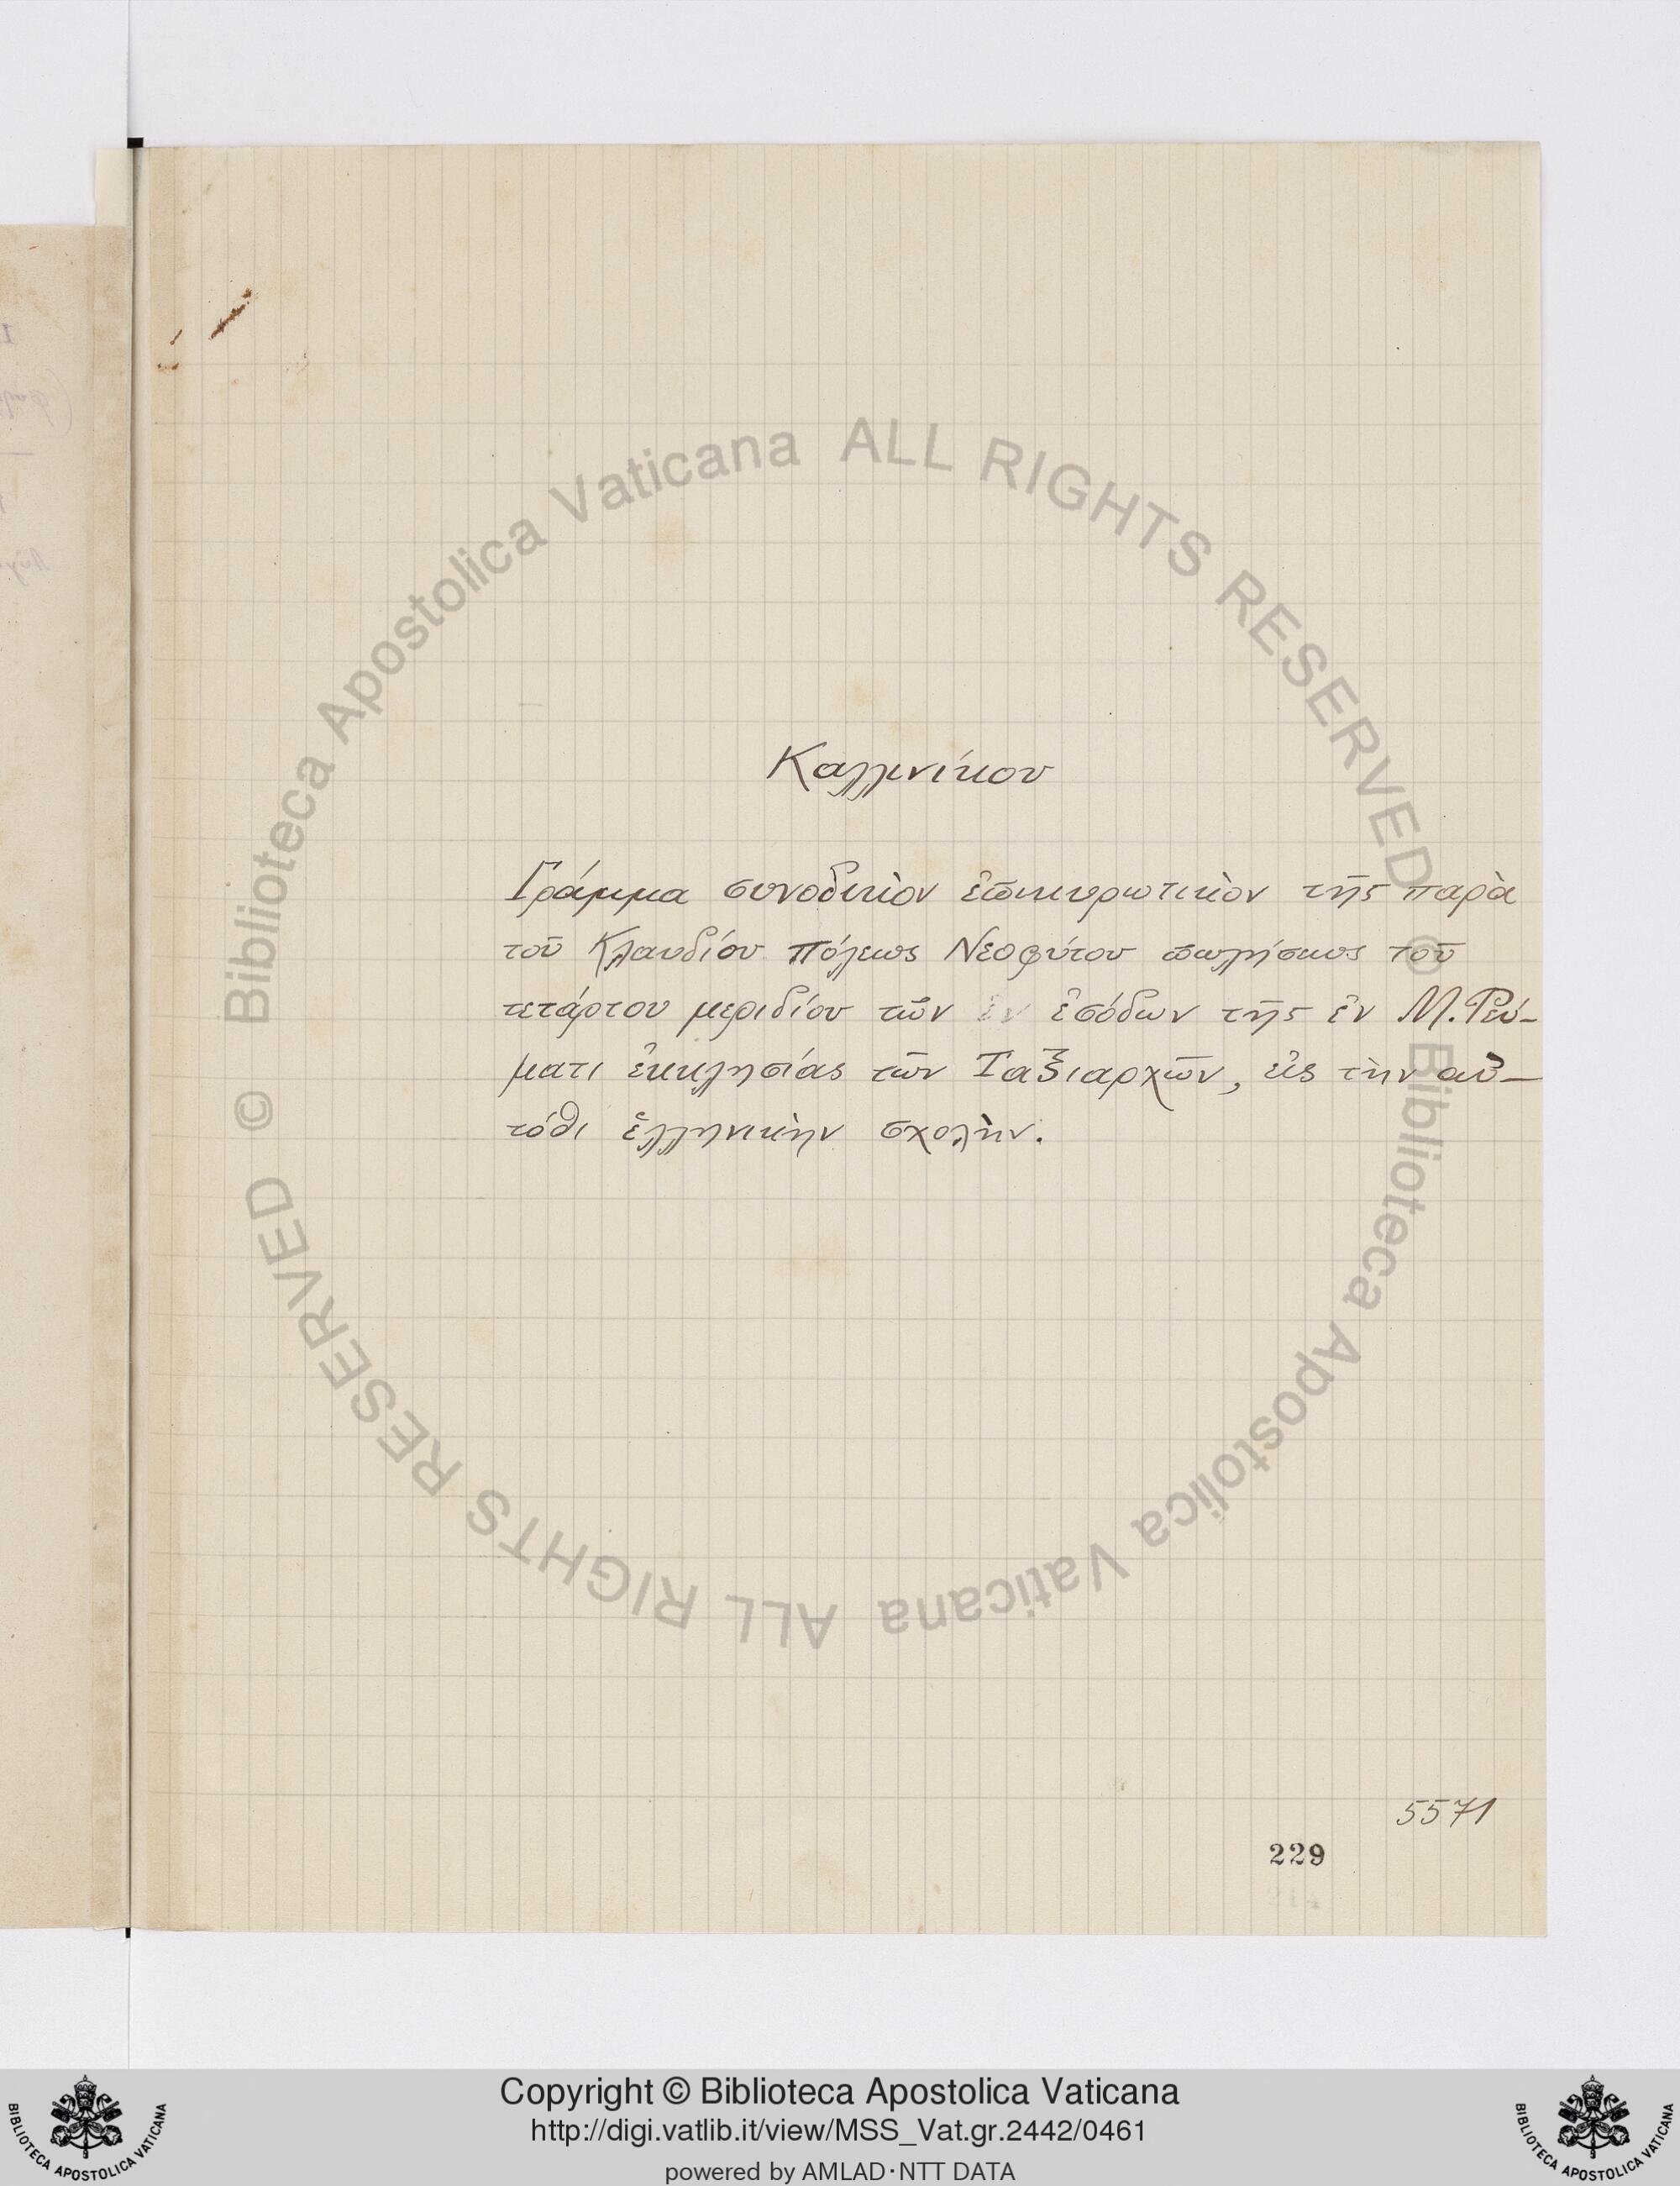 Καλλινίκου
Γράμμα συνοδικὸν ἐπικυρωτικὸν τῆς παρὰ
τοῦ Κλαυδίου πόλεως Νεοφύτου πωλήσεως τοῦ
τετάρτου μεριδίου τῶν ἐν ἐσόδων τῆς ἐν Μ. Ῥεύ-
ματι ἐκκλησίας τῶν Ταξιαρχῶν, εἰς τὴν αὐ-
τόθι ἑλληνικὴν σχολὴν.
5571
229
© Biblioteca Apostolica Vaticana ALL RIGHTS RESERVED
© Biblioteca Apostolica Vaticana ALL RIGHTS RESERVED
Copyright © Biblioteca Apostolica Vaticana
http://digi.vatlib.it/view/MSS_Vat.gr.2442/0461
powered by AMLAD·NTT DATA
BIBLIOTECA APOSTOLICA VATICANA
BIBLIOTECA APOSTOLICA VATICANA